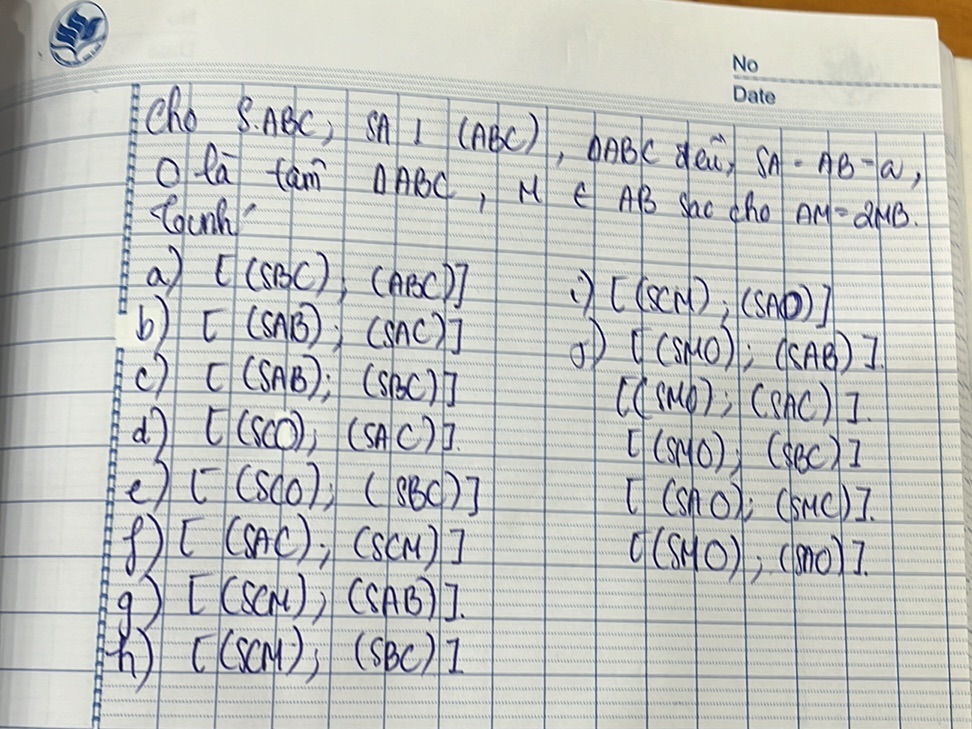 No
Date
Cho S.ABC, SA ⊥ (ABC), ΔABC đều, SA = AB = a,
O là tâm ΔABC, M ∈ AB sao cho AM = 2MB.
Tính
a) [(SBC); (ABC)]
b) [(SAB); (SAC)]
c) [(SAB); (SBC)]
d) [(SCO); (SAC)]
e) [(SCO); (SBC)]
f) [(SAC); (SCM)]
g) [(SCM); (SAB)].
h) [(SCM); (SBC)]
i) [(SCM); (SAO)]
j) [(SMO); (SAB)].
[(SMO); (SAC)].
[(SMO); (SBC)]
[(SAO); (SMC)].
[(SMO); (SAO)].